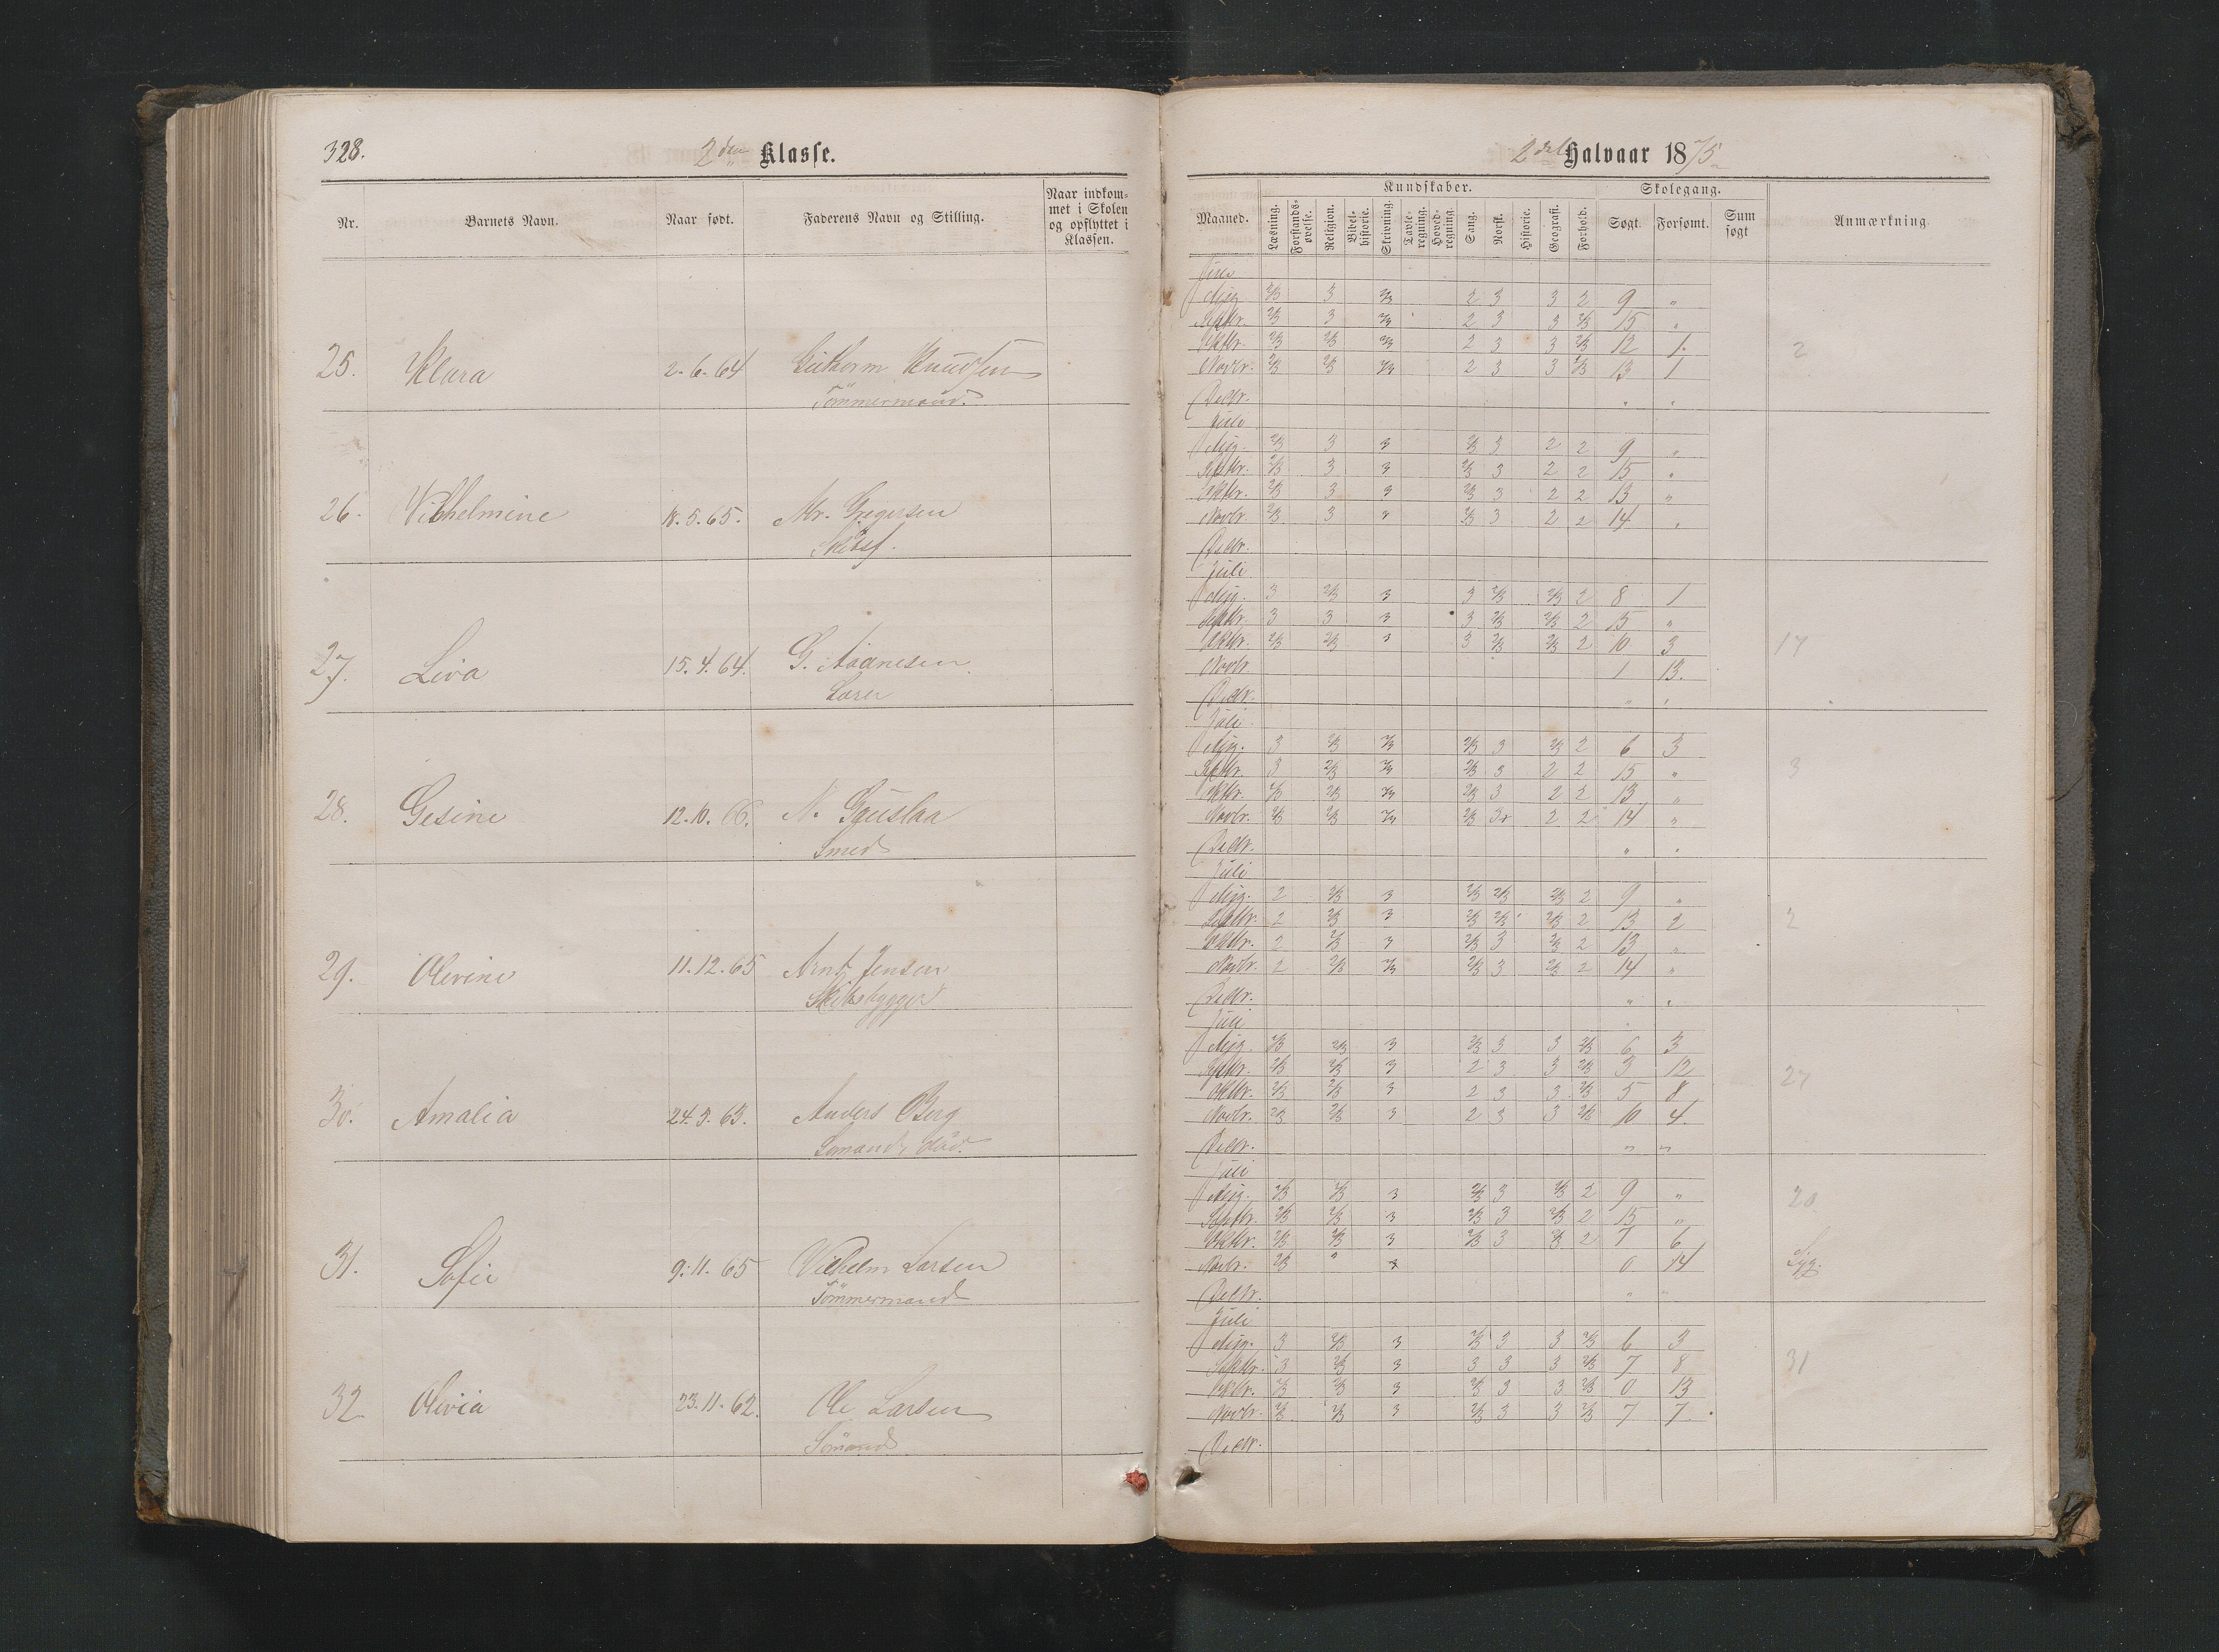 328.
2den Klasse.
Nr.
Barnets Navn.
Naar født.
Faderens Navn og Stilling.
Naar indkom-
met i Skolen
og opflyttet i
Klassen.
25. Klara 2-6-64 Guttorm Knudsen
Tömmermand.
26. Vilhelmine 18.5.65. Mr. Gregersen
27. Liva 15.4.64. G. Aaanesen
28. Gesine 12.10.66. N. Gauslaa
Smed
29. Olevine 11.12.65 Arnt Jensen
Skibsbygger
30. Amalia 24.3.63. Anders Berg
Sömand, död.
31. Sofie 9.11.65 Vilhelm Larsen
Tömmermand
32 Olivia 23.11.62. Ole Larsen
Sömand
2det Halvaar 1875
Kundskaber. Skolegang.
Maaned.
Læsning.
Forstands-
øvelse.
Religion.
Bibel-
historie.
Skrivning.
Tavle-
regning.
Hoved-
regning.
Sang.
Norsk.
Historie.
Geografi.
Forhold.
Søgt.
Forsømt.
Sum
søgt
Anmærkning
Juli
Aug. 2/3 3 2/3 2 3 3 2 9 "
Septbr. 2/3 3 2/3 2 3 3 2/3 15 "
Oktbr. 2/3 2/3 2/3 2 3 3 2/3 12 1. 2
Novbr. 2/3 2/3 2/3 2 3 3 2/3 13 1
Decbr. " "
Juli
Aug. 2/3 3 3 2/3 3 2 2 9 "
Septbr. 2/3 3 3 2/3 3 2 2 15 "
Oktbr. 2/3 3 3 2/3 3 2 2 13 "
Novbr. 2/3 3 3 2/3 3 2 2 14 "
Decbr.
Juli
Aug. 3 2/3 3 3 2/3 2/3 2 8 1
Septbr. 3 3 3 3 2/3 2/3 2 15 "
Oktbr. 2/3 2/3 3 3 2/3 2/3 2 10 3 17
Novbr. 1 13.
Decbr. " "
Juli
Aug. 3 2/3 2/3 2/3 3 2/3 2 6 3
Septbr. 3 2/3 2/3 2/3 3 2 2 15 " 3
Oktbr. 2/3 2/3 2/3 2/3 3 2 2 13 "
Novbr. 2/3 2/3 2/3 2/3 3 2 2 14 "
Decbr. " "
Juli
Aug. 2 2/3 3 2/3 2/3 2/3 2 9 "
Septbr. 2 2/3 3 2/3 2/3 2/3 2 13 2 2
Oktbr. 2 2/3 3 2/3 3 2/3 2 13 "
Novbr. 2 2/3 2/3 2/3 3 2/3 2 14 "
Decbr. " "
Juli
Aug. 2/3 2/3 3 2/3 3 3 2/3 6 3
Septbr. 2/3 2/3 3 2 3 3 2/3 3 12 27
Oktbr. 2/3 2/3 3 2 3 3 2/3 5 8
Novbr. 2/3 2/3 3 2 3 3 2/3 10 4.
Decbr. " "
Juli
Aug. 2/3 2/3 3 2/3 3 2/3 2 9 " 20
Septbr. 2/3 2/3 3 2/3 3 2/3 2 15 "
Oktbr. 2/3 2/3 3 2/3 3 2/3 2 7 6
Novbr. 2/3 3 0 14 Syg.
Decbr. " "
Juli
Aug. 3 2/3 3 2/3 3 3 2/3 6 3
Septbr. 3 2/3 3 3 3 3 2/3 7 8 31
Oktbr. 2/3 2/3 3 2/3 3 3 2/3 0 13
Novbr. 2/3 2/3 3 2/3 3 3 2/3 7 7.
Decbr.